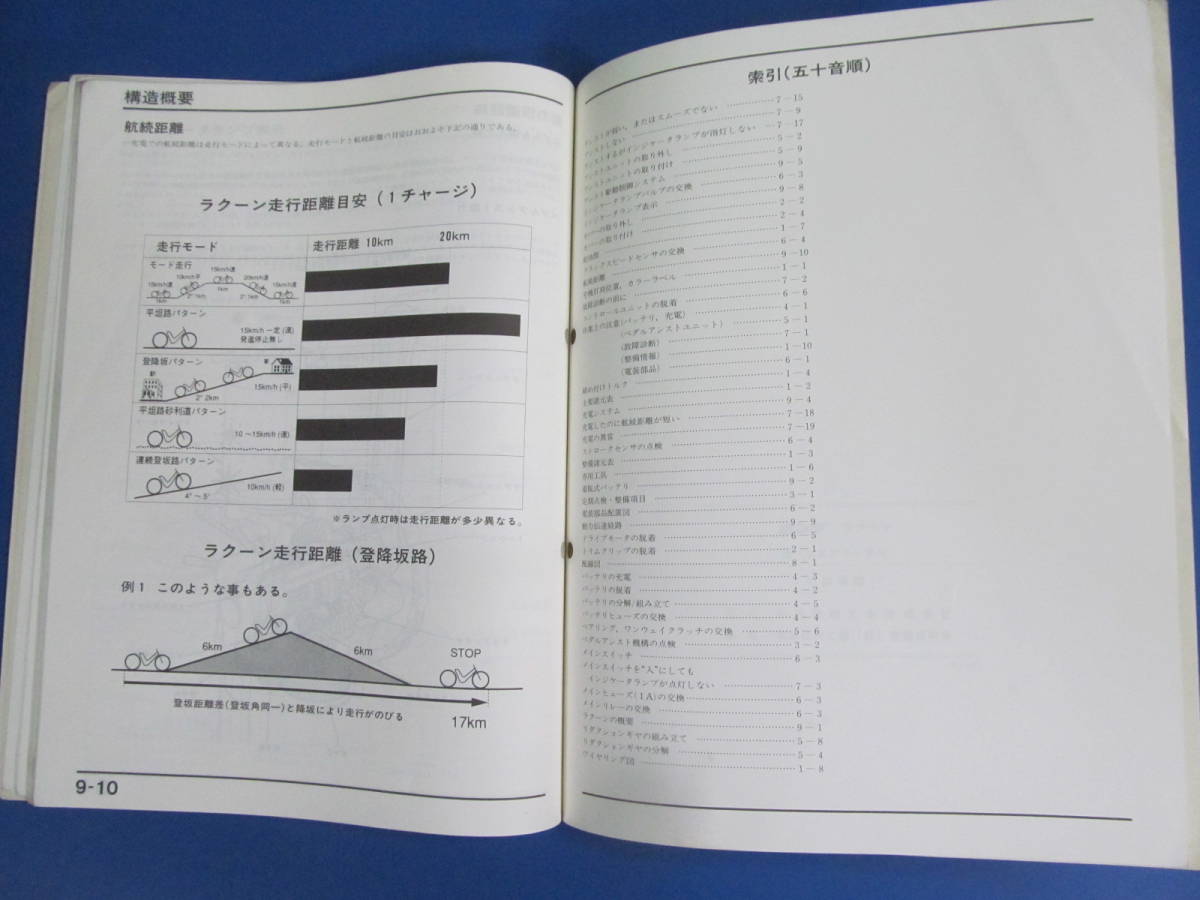 構造概要
航続距離
一充電での航続距離は走行モードによって異なる。走行モードと航続距離の目安はおおよそ下記の通りである。
ラクーン走行距離目安(1チャージ)
走行モード
走行距離 10km 20km
モード走行
15km/h速
10km/h平
20km/h速
15km/h速
15km/h速
1km
2° 1km
1km
2° 1km
1km
平坦路パターン
15km/h 一定(速)
発進停止無し
登降坂パターン
駅
家
2° 2km
15km/h(平)
平坦路砂利道パターン
10~15km/h(速)
連続登坂路パターン
4°~5°
10km/h(軽)
※ランプ点灯時は走行距離が多少異なる。
ラクーン走行距離(登降坂路)
例1 このような事もある。
6km
6km
STOP
登坂距離差(登坂角同一)と降坂により走行がのびる
17km
9-10
索引(五十音順)
アシストが弱い、またはスムーズでない 7-15
アシストしない 7-9
アシストするがインジケータランプが消灯しない 7-17
アシストユニットの取り外し 5-2
アシストユニットの取り付け 5-9
アシスト駆動制御システム 9-5
インジケータランプバルブの交換 6-3
インジケータランプ表示 9-8
カバーの取り外し 2-2
カバーの取り付け 2-4
1-7
クランクスピードセンサの交換 6-4
航続距離 9-10
号機打刻位置、カラーラベル 1-1
故障診断の前に 7-2
コントロールユニットの脱着 6-6
作業上の注意(バッテリ、充電) 4-1
(ペダルアシストユニット) 5-1
(故障診断) 7-1
(整備情報) 1-10
(電装部品) 6-1
締め付けトルク 1-4
主要諸元表 1-2
充電システム 9-4
充電したのに航続距離が短い 7-18
充電の異常 7-19
ストロークセンサの点検 6-4
整備諸元表 1-3
専用工具 1-6
着脱式バッテリ 9-2
定期点検・整備項目 3-1
電装部品配置図 6-2
動力伝達経路 9-9
ドライブモータの脱着 6-5
トリムクリップの脱着 2-1
配線図 8-1
バッテリの充電 4-3
バッテリの脱着 4-2
バッテリの分解/組み立て 4-5
バッテリヒューズの交換 4-4
ベアリング、ワンウェイクラッチの交換 5-6
ペダルアシスト機構の点検 3-2
メインスイッチ 6-3
メインスイッチを"入"にしても
インジケータランプが点灯しない 7-3
メインヒューズ(1A)の交換 6-3
メインリレーの交換 6-3
ラクーンの概要 9-1
リダクションギヤの組み立て 5-8
リダクションギヤの分解 5-4
ワイヤリング図 1-8